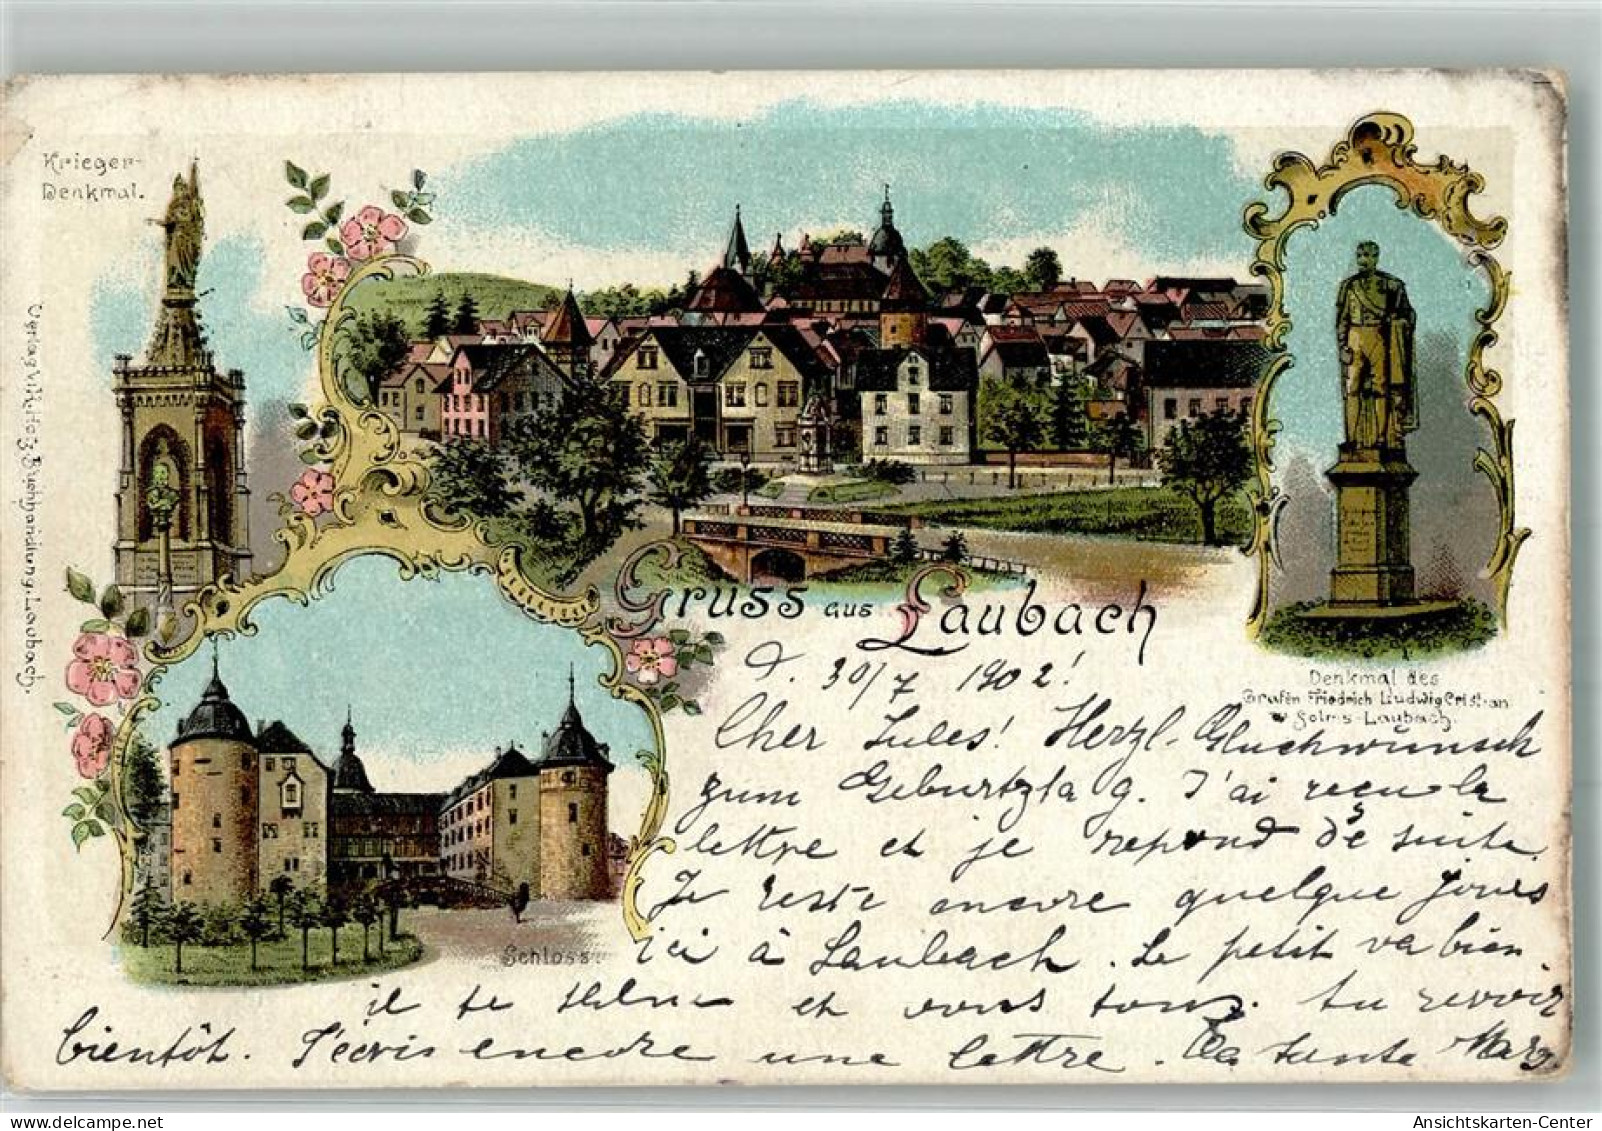 Krieger-
Denkmal.
Verlag v. Buchhandlung, Laubach.
Gruss aus Laubach
Denkmal des
Grafen Friedrich Ludwig Cristian
v Solms-Laubach.
Schloss.
d. 30/7 1902!
Cher Jules! Herzl. Gluckwunsch
zum Geburtztag. J'ai recu la
lettre et je repond de suite.
Je reste encore quelque jours
ici à Laubach. Le petit va bien
il te salue et vous tous. Au revoir
bientôt. J'écris encore une lettre. Ta tante Marg.
Ansichtskarten-Center